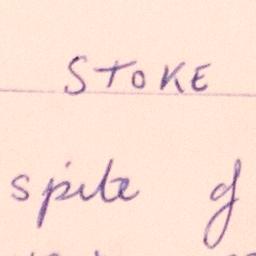 STOKE
spite of